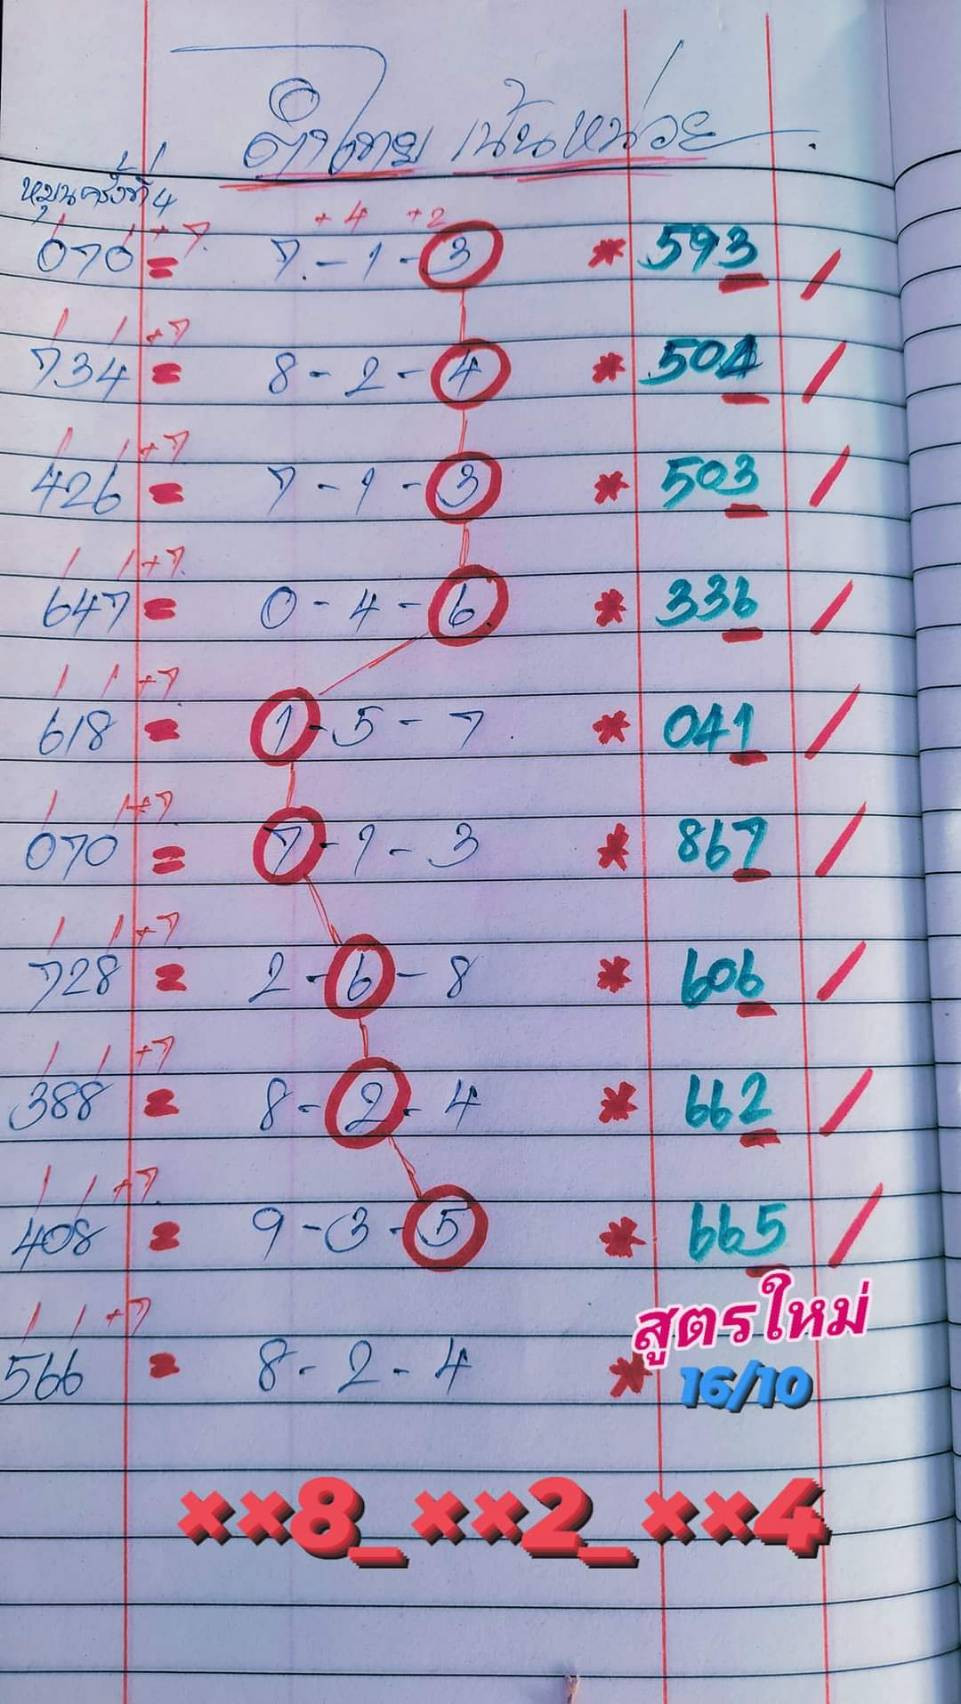 ดำไทย เน้นหน่วย
หมุนครั้งที่ 4
+4 +2
070 +7 = 7-1-3 * 593 /
734 +7 = 8-2-4 * 504 /
426 +7 = 7-1-3 * 503 /
647 +7 = 0-4-6 * 336 /
618 +7 = 1-5-7 * 041 /
070 +7 = 7-1-3 * 867 /
728 +7 = 2-6-8 * 606 /
388 +7 = 8-2-4 * 662 /
408 +7 = 9-3-5 * 665 /
สูตรใหม่
566 +7 = 8-2-4 *
16/10
××8_××2_××4